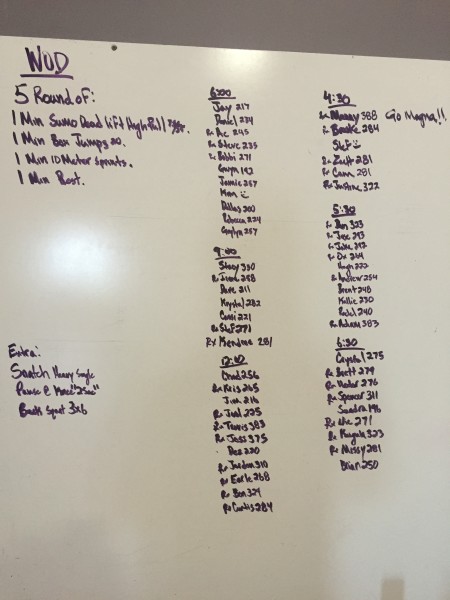 WOD
5 Round of:
1 Min Sumo Dead lift High Pull
1 Min Box Jumps 20.
1 Min 10 Meter sprints.
1 Min Rest.
Extra:
Snatch Heavy Single
Pause @
Back Squat 3x6
6:00
Jay 217
Daniel 274
Rx 245
Rx Steve 235
Rx Bobbi 271
Gwyn 192
Jamie 257
Mom
Dallas 200
Rebecca 224
Gaylyn 257
9:00
Stacy 350
258
Dave 211
Krystal 282
Conni 221
Rx Stef 271
Rx Kendra 281
12:10
Chad 256
Rx Kris 265
Jim 216
Rx Joal 225
Rx Travis 383
Rx Jess 375
Dez 220
Rx Jordan 310
Rx Earle 268
Rx Ben 324
Rx Curtis 284
4:30
Rx Manny 388 Go Magna!!
Rx 284
Stef
Rx Zach 281
Rx Cam 281
Rx Justine 322
5:30
Rx Ben 323
Rx Jose 293
Rx Jake 292
Rx Ox
Hugh 272
Rx Andrew 254
Brent 248
Kollie 230
240
Rx Adam 383
6:30
Crystal 275
Rx Brett 279
276
Rx Spencer 311
Sandra 196
Rx 271
Rx 323
Rx Missy 281
Brian 250